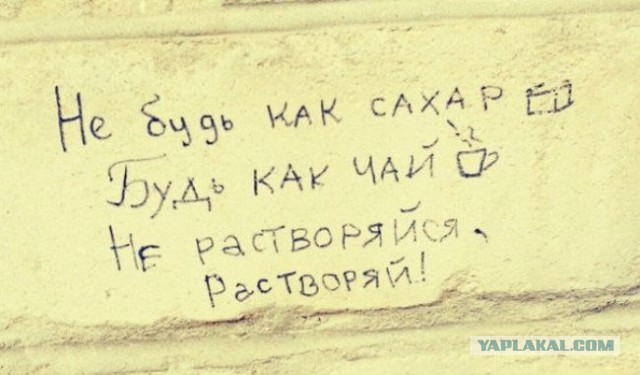 Не будь как сахар
Будь как чай
Не растворяйся,
Растворяй!
YAPLAKAL.COM